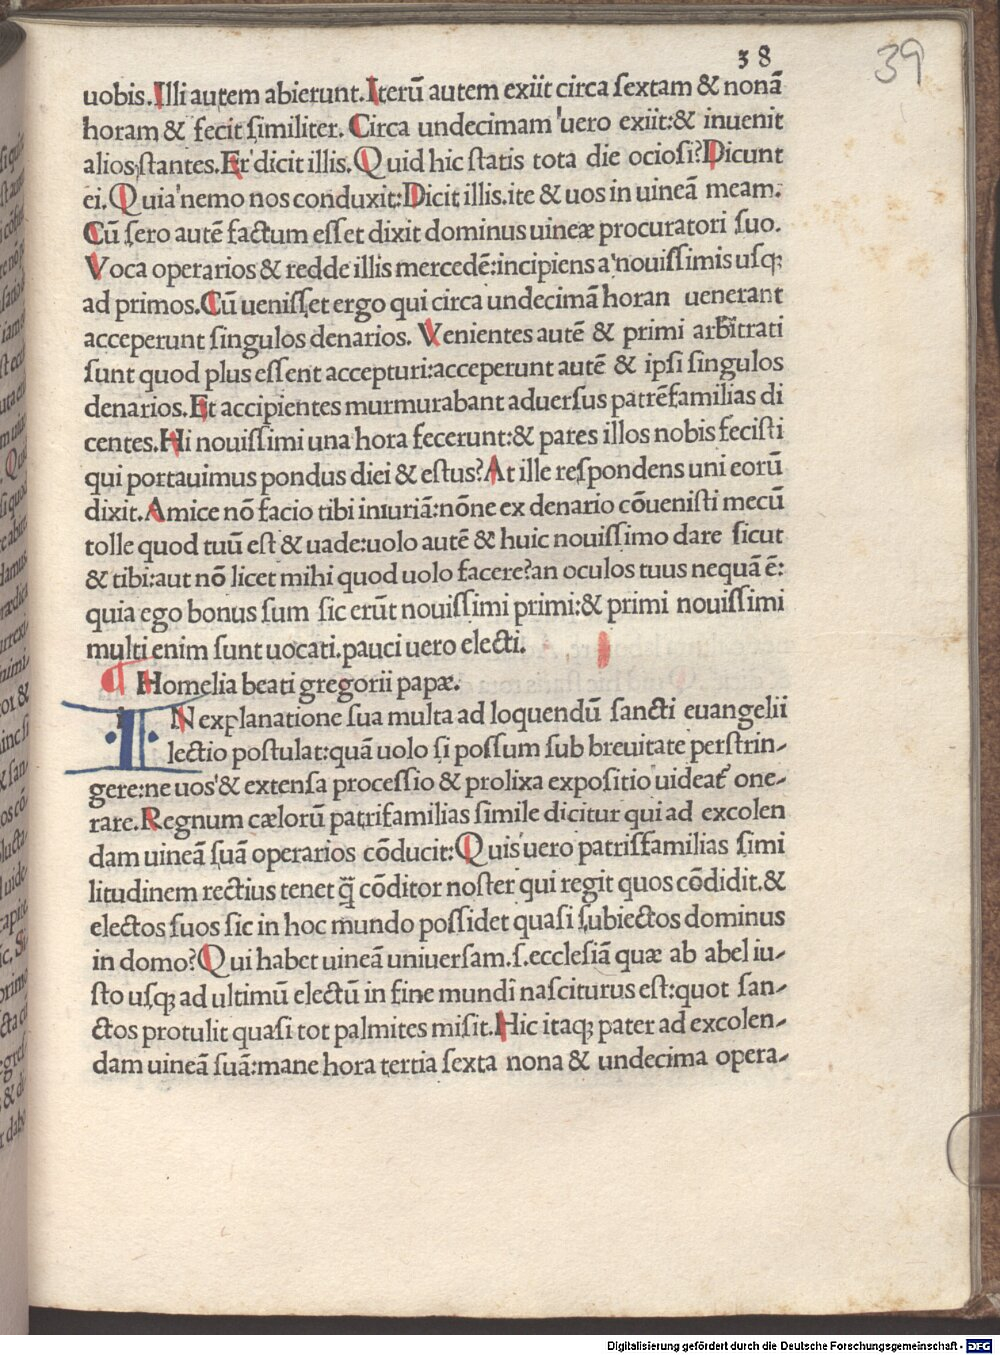 38
39
uobis.Illi autem abierunt.Iterū autem exiit circa ſextam & nonā
horam & fecit ſimiliter. Circa undecimam uero exiit:& inuenit
alios ſtantes.Et dicit illis.Quid hic ſtatis tota die ocioſi?Dicunt
ei.Quia nemo nos conduxit:Dicit illis.ite & uos in uineā meam.
Cū ſero autē factum eſſet dixit dominus uineæ procuratori ſuo.
Voca operarios & redde illis mercedē:incipiens a nouiſſimis uſqꝫ
ad primos.Cū ueniſſet ergo qui circa undecimā horan uenerant
acceperunt ſingulos denarios. Venientes autē & primi arbitrati
ſunt quod plus eſſent accepturi:acceperunt autē & ipſi ſingulos
denarios.Et accipientes murmurabant aduerſus patrēfamilias di
centes.Hi nouiſſimi una hora fecerunt:& pares illos nobis feciſti
qui portauimus pondus diei & eſtus?At ille reſpondens uni eorū
dixit.Amice nō facio tibi iniuriā:nōne ex denario cōueniſti mecū
tolle quod tuū eſt & uade:uolo autē & huic nouiſſimo dare ſicut
& tibi:aut nō licet mihi quod uolo facere?an oculos tuus nequā ē:
quia ego bonus ſum ſic erūt nouiſſimi primi:& primi nouiſſimi
multi enim ſunt uocati.pauci uero electi.
Homelia beati gregorii papæ.
IN explanatione ſua multa ad loquendū ſancti euangelii
lectio poſtulat:quā uolo ſi poſſum ſub breuitate perſtrin-
gere:ne uos & extenſa proceſſio & prolixa expoſitio uideat᷑ one-
rare.Regnum cælorū patrifamilias ſimile dicitur qui ad excolen
dam uineā ſuā operarios cōducit:Quis uero patriſfamilias ſimi
litudinem rectius tenet q̄ȝ cōditor noſter qui regit quos cōdidit.&
electos ſuos ſic in hoc mundo poſſidet quaſi ſubiectos dominus
in domo?Qui habet uineā uniuerſam.ſ.eccleſiā quæ ab abel iu-
ſto uſqꝫ ad ultimū electū in fine mundi naſciturus eſt:quot ſan-
ctos protulit quaſi tot palmites miſit.Hic itaqꝫ pater ad excolen-
dam uineā ſuā:mane hora tertia ſexta nona & undecima opera-
Digitalisierung gefördert durch die Deutsche Forschungsgemeinschaft - DFG